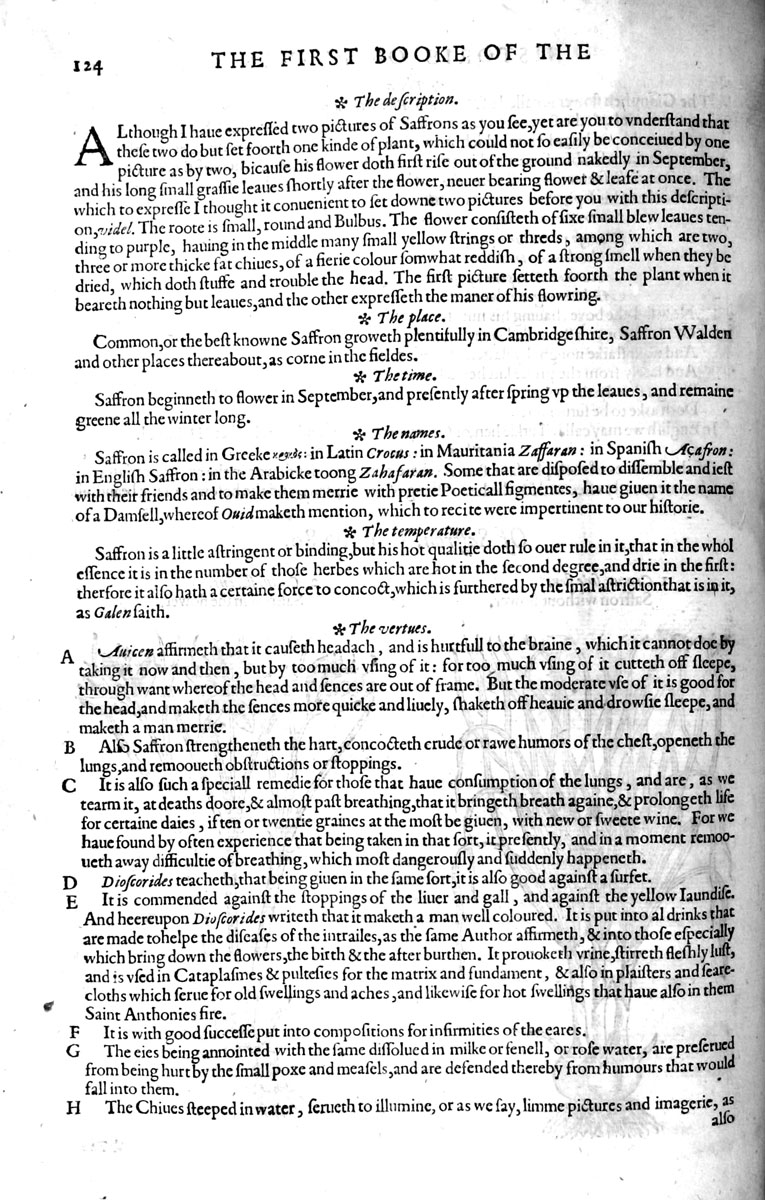 124
THE FIRST BOOKE OF THE
✻ The deſcription.
ALthough I haue expreſſed two pictures of Saffrons as you ſee,yet are you to vnderſtand that
theſe two do but ſet foorth one kinde of plant, which could not ſo eaſily be conceiued by one
picture as by two, bicauſe his flower doth firſt riſe out of the ground nakedly in September,
and his long ſmall graſſie leaues ſhortly after the flower, neuer bearing flower & leafe at once. The
which to expreſſe I thought it conuenient to ſet downe two pictures before you with this deſcripti-
on,videl. The roote is ſmall, round and Bulbus. The flower conſiſteth of ſixe ſmall blew leaues ten-
ding to purple, hauing in the middle many ſmall yellow ſtrings or threds, among which are two,
three or more thicke fat chiues, of a fierie colour ſomwhat reddiſh, of a ſtrong ſmell when they be
dried, which doth ſtuffe and trouble the head. The firſt picture ſetteth foorth the plant when it
beareth nothing but leaues,and the other expreſſeth the maner of his flowring.
✻ The place.
Common,or the beſt knowne Saffron groweth plentifully in Cambridgeſhire, Saffron Walden
and other places thereabout,as corne in the fieldes.
✻ The time.
Saffron beginneth to flower in September,and preſently after ſpring vp the leaues, and remaine
greene all the winter long.
✻ The names.
Saffron is called in Greeke : in Latin Crocus: in Mauritania Zaffaran: in Spaniſh Açafron:
in Engliſh Saffron: in the Arabicke toong Zahafaran. Some that are diſpoſed to diſſemble and ieſt
with their friends and to make them merrie with pretie Poeticall figmentes, haue giuen it the name
of a Damſell,whereof Ouid maketh mention, which to recite were impertinent to our hiſtorie.
✻ The temperature.
Saffron is a little aſtringent or binding,but his hot qualitie doth ſo ouer rule in it,that in the whol
eſſence it is in the number of thoſe herbes which are hot in the ſecond degree,and drie in the firſt:
therfore it alſo hath a certaine force to concoct,which is furthered by the ſmal aſtriction that is in it,
as Galen ſaith.
✻ The vertues.
A Auicen affirmeth that it cauſeth headach, and is hurtfull to the braine, which it cannot doe by
taking it now and then, but by too much vſing of it: for too much vſing of it cutteth off ſleepe,
through want whereof the head and ſences are out of frame. But the moderate vſe of it is good for
the head,and maketh the ſences more quicke and liuely, ſhaketh off heauie and drowſie ſleepe,and
maketh a man merrie.
B Alſo Saffron ſtrengtheneth the hart, concocteth crude or rawe humors of the cheſt,openeth the
lungs,and remooueth obſtructions or ſtoppings.
C It is alſo ſuch a ſpeciall remedie for thoſe that haue conſumption of the lungs, and are, as we
tearm it, at deaths doore,& almoſt paſt breathing,that it bringeth breath againe,& prolongeth life
for certaine daies, if ten or twentie graines at the moſt be giuen, with new or ſweete wine. For we
haue found by often experience that being taken in that ſort, it preſently, and in a moment remoo-
ueth away difficultie of breathing, which moſt dangerouſly and ſuddenly happeneth.
D Dioſcorides teacheth,that being giuen in the ſame ſort,it is alſo good againſt a ſurfet.
E It is commended againſt the ſtoppings of the liuer and gall, and againſt the yellow Iaundiſe.
And heereupon Dioſcorides writeth that it maketh a man well coloured. It is put into al drinks that
are made to helpe the diſeaſes of the intrailes,as the ſame Author affirmeth, & into thoſe eſpecially
which bring down the flowers,the birth & the after burthen. It prouoketh vrine,ſtirreth fleſhly luſt,
and is vſed in Cataplaſmes & pulteſies for the matrix and fundament, & alſo in plaiſters and ſeare-
cloths which ſerue for old ſwellings and aches,and likewiſe for hot ſwellings that haue alſo in them
Saint Anthonies fire.
F It is with good ſucceſſe put into compoſitions for infirmities of the eares.
G The eies being annointed with the ſame diſſolued in milke or fenell, or roſe water, are preſerued
from being hurt by the ſmall poxe and meaſels,and are defended thereby from humours that would
fall into them.
H The Chiues ſteeped in water, ſerueth to illumine, or as we ſay, limme pictures and imagerie, as
alſo